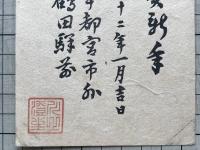 賀新年
十二年一月吉日
宇都宮市外
鶴田驛前